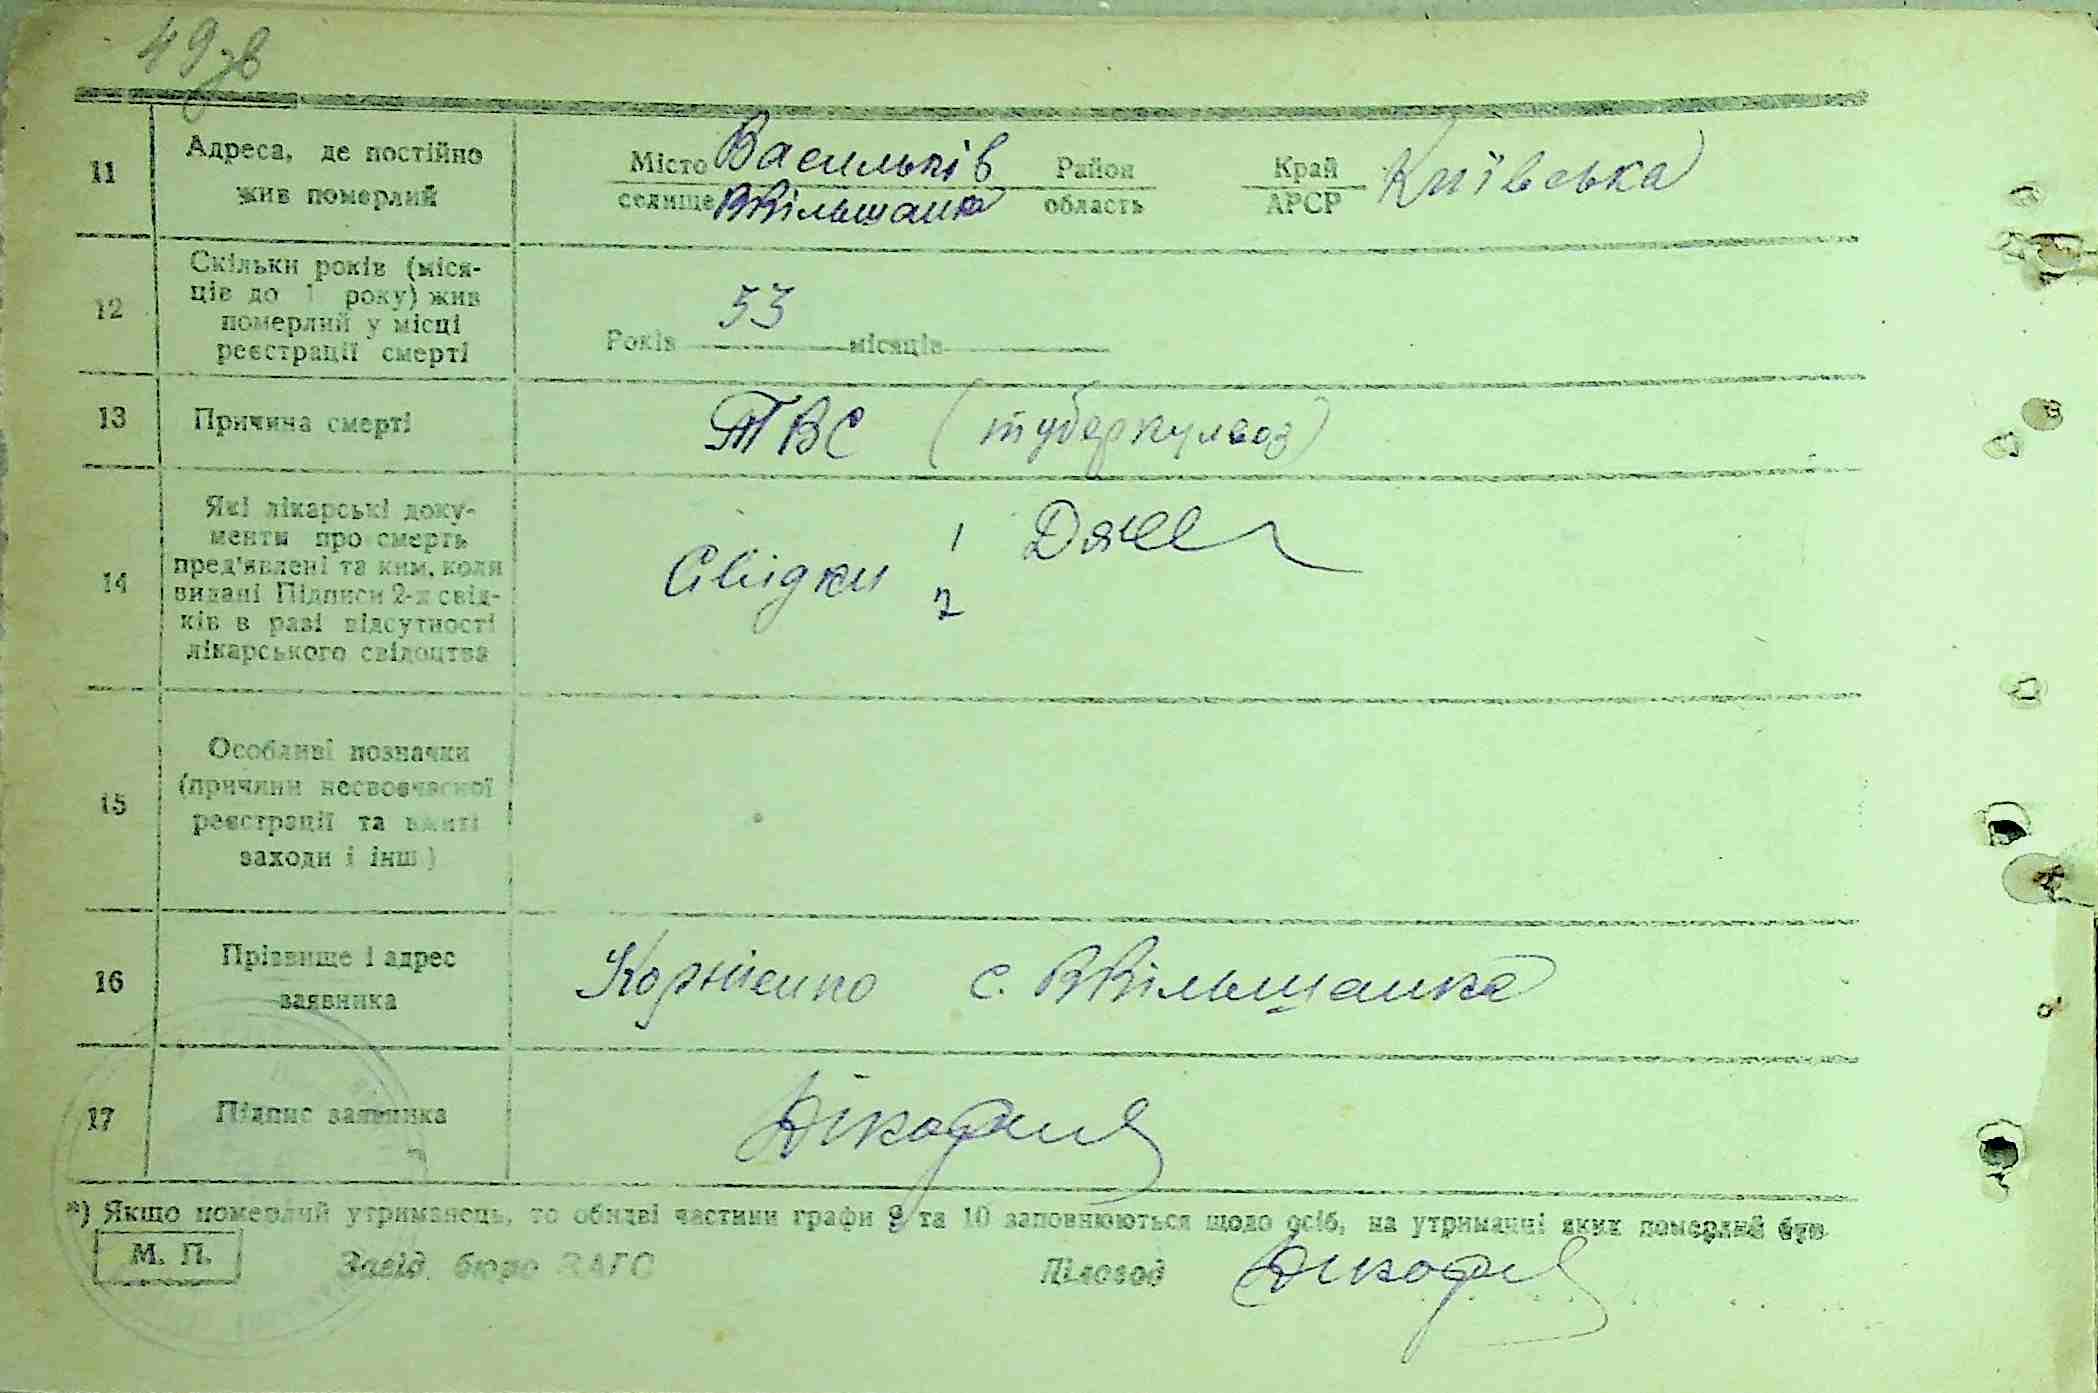 49зв
11 Адреса, де постійно жив померлий Місто селище Васильків ВВільшанка Район область Край АРСР Київська
12 Скільки років (міся-
ців до 1 року) жив
померлий у місці
реєстрації смерті
Років 53 місяців
13 Причина смерті ТВС (туберкульоз)
14 Які лікарські доку-
менти про смерть
пред'явлені та ким, коли
видані Підписи 2-х свід-
ків в разі відсутності
лікарського свідоцтва
Свідки 1
2
15 Особливі позначки
(причини несвоєчасної
реєстрації та вжиті
заходи і інш.)
16 Прізвище і адрес
заявника
Корнієнко с. ВВільшанка
17 Підпис заявника
*) Якщо померлий утриманець, то обидві частини графи 9 та 10 заповнюються щодо осіб, на утриманні яких померлий був
М. П. Завід. бюро ЗАГС Діловод